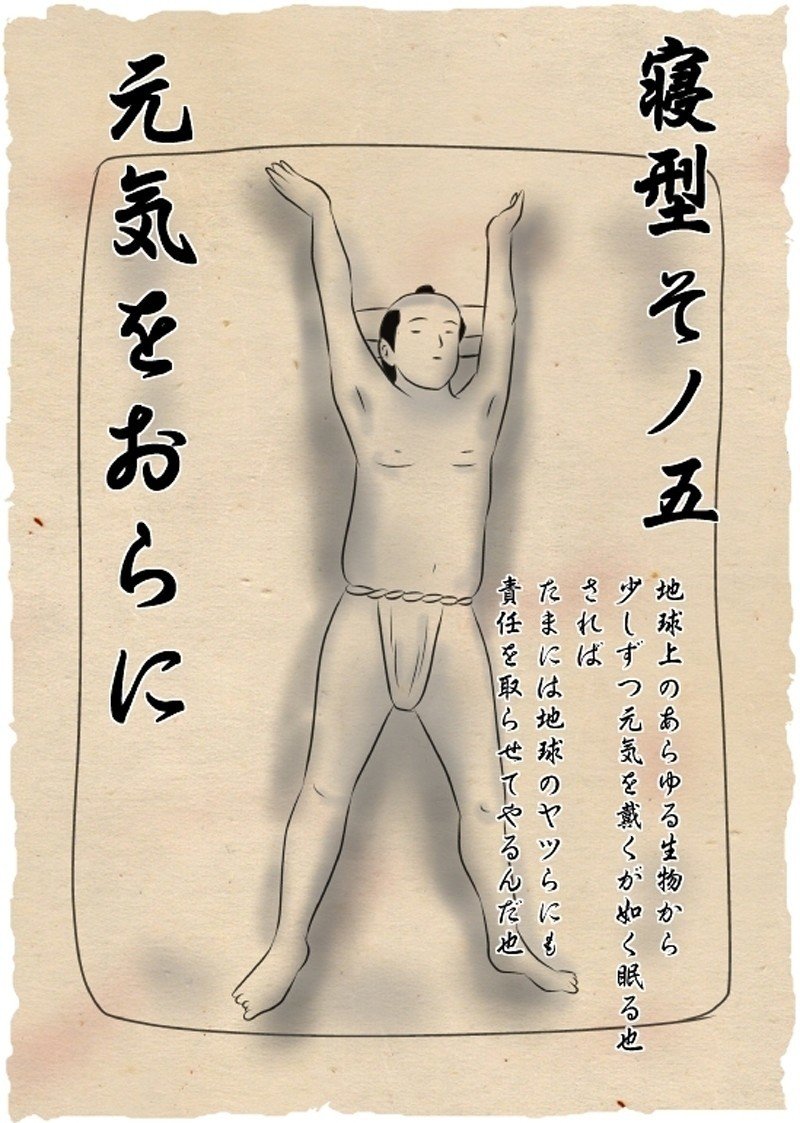 寝型その五
地球上のあらゆる生物から
少しずつ元気を戴くが如く眠る也
されば
たまには地球のヤツらにも
責任を取らせてやるんだ也
元気をおらに